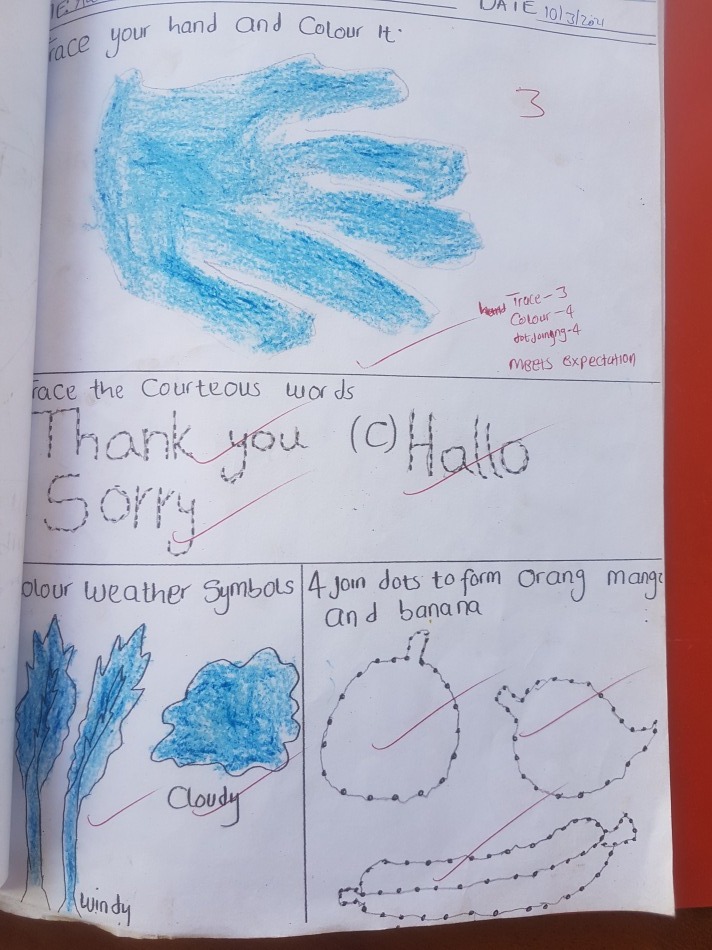 DATE 10/3/2021
race your hand and Colour It.
3
hand Trace-3
Colour-4
dot joining-4
Meets expectation
race the Courteous words
Thank you (C) Hallo
Sorry
olour weather Symbols
Cloudy
windy
4 Join dots to form orang mang
and banana